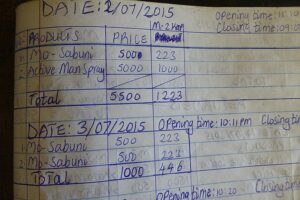 DATE: 2/07/2015 Opening time: 10:
Closing time: 09:0
PRODUCTS PRICE
1. Mo-Sabuni 500 223
2. Active Man Spray 5000 1000
Total 5500 1223
DATE: 3/07/2015 Opening time: 10:11pm Closing time
1. Mo-Sabuni 500 223
2. Mo-Sabuni 500 223
Total 1000 446
Opening time: 10:20 Closing